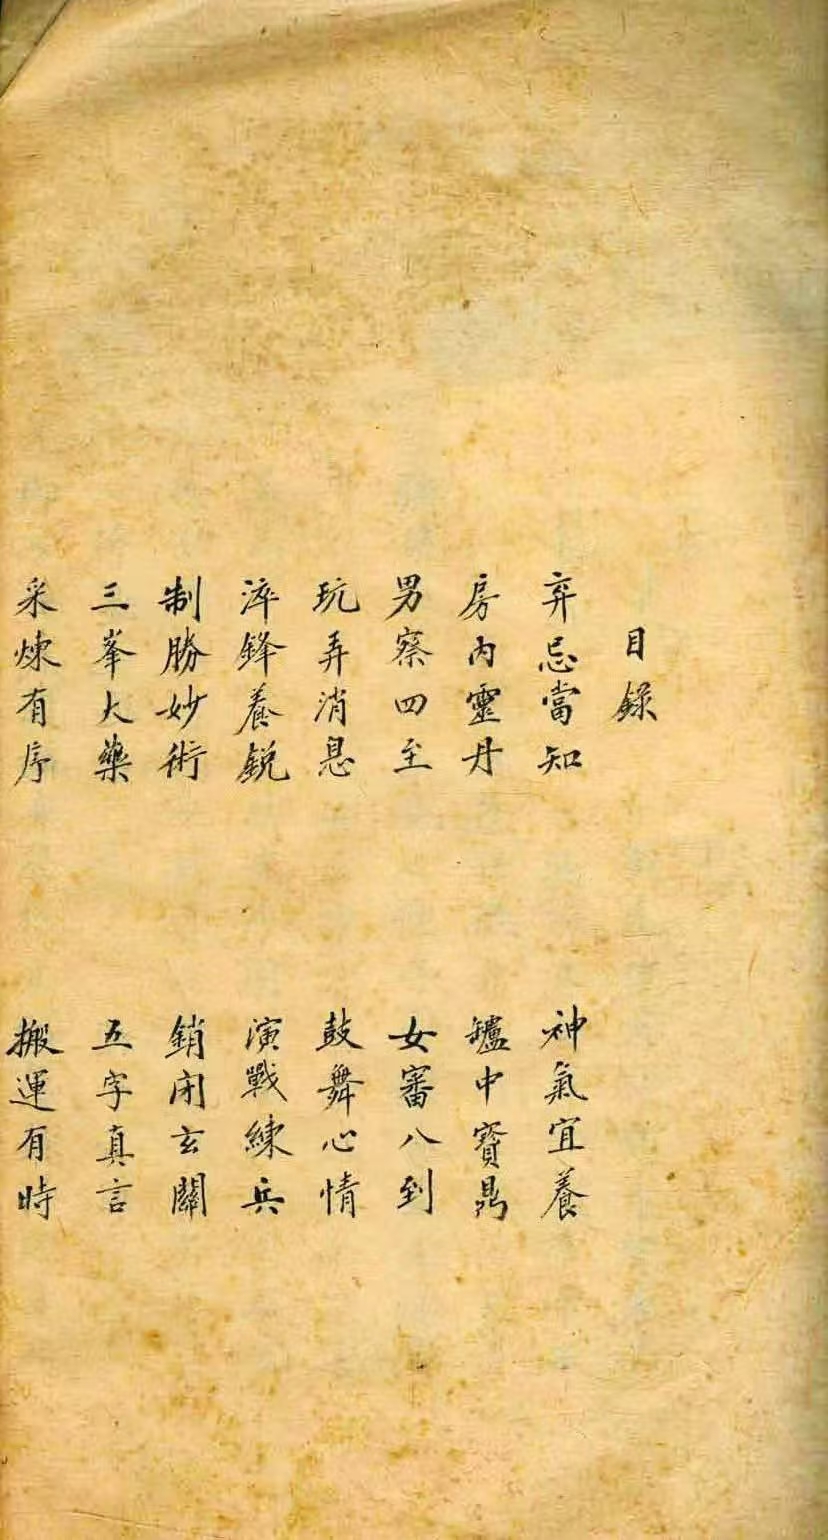 目録
弃忌當知 神氣宜養
房內靈丹 鑪中寳鼎
男察四至 女審八到
玩弄消息 鼓舞心情
淬鋒養鋭 演戰練兵
制勝妙術 銷閉玄關
三峯大藥 五字真言
采煉有序 搬運有時